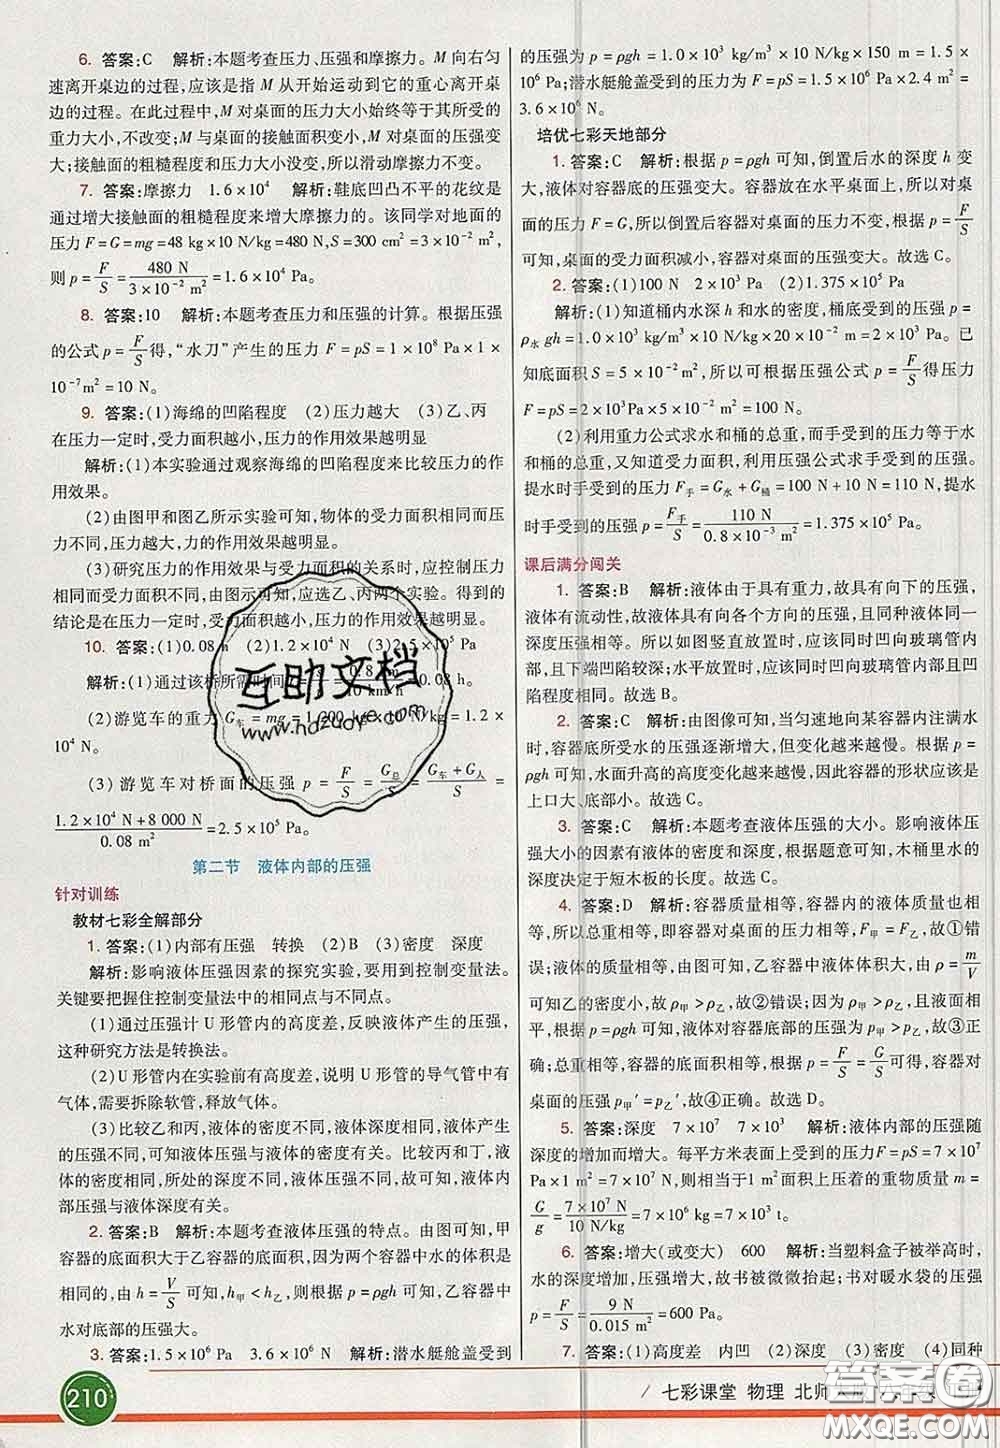 6. 答案:C 解析:本题考查压力、压强和摩擦力。M 向右匀
速离开桌边的过程,应该是指 M 从开始运动到它的重心离开桌
边的过程。在此过程中,M 对桌面的压力大小始终等于其所受的
重力大小,不改变;M 与桌面的接触面积变小,M 对桌面的压强变
大;接触面的粗糙程度和压力大小没变,所以滑动摩擦力不变。
7. 答案:摩擦力 1.6×10⁴ 解析:鞋底凹凸不平的花纹是
通过增大接触面的粗糙程度来增大摩擦力的。该同学对地面的
压力 F=G=mg=48 kg×10 N/kg=480 N,S=300 cm²=3×10⁻² m²,
则 p=F/S=480 N/(3×10⁻² m²)=1.6×10⁴ Pa。
8. 答案:10 解析:本题考查压力和压强的计算。根据压强
的公式 p=F/S 得,“水刀”产生的压力 F=pS=1×10⁸ Pa×1×
10⁻⁷m²=10 N。
9. 答案:(1)海绵的凹陷程度 (2)压力越大 (3)乙、丙
在压力一定时,受力面积越小,压力的作用效果越明显
解析:(1)本实验通过观察海绵的凹陷程度来比较压力的作
用效果。
(2)由图甲和图乙所示实验可知,物体的受力面积相同而压
力不同,压力越大,力的作用效果越明显。
(3)研究压力的作用效果与受力面积的关系时,应控制压力
相同而受力面积不同,由图示可知,应选乙、丙两个实验。得到的
结论是在压力一定时,受力面积越小,压力的作用效果越明显。
10. 答案:(1)0.08 h (2)1.2×10⁴ N (3)2.5×10⁵ Pa
解析:(1)通过该桥所需时间 =0.8 km/10 km/h=0.08 h。
(2)游览车的重力 G车=mg=1 200 kg×10 N/kg=1.2×
10⁴ N。
(3)游览车对桥面的压强 p=F/S=G总/S=(G车+G人)/S=
(1.2×10⁴ N+8 000 N)/0.08 m²=2.5×10⁵ Pa。
第二节 液体内部的压强
针对训练
教材七彩全解部分
1. 答案:(1)内部有压强 转换 (2)B (3)密度 深度
解析:影响液体压强因素的探究实验,要用到控制变量法。
关键要把握住控制变量法中的相同点与不同点。
(1)通过压强计 U 形管内的高度差,反映液体产生的压强,
这种研究方法是转换法。
(2)U 形管内在实验前有高度差,说明 U 形管的导气管中有
气体,需要拆除软管,释放气体。
(3)比较乙和丙,液体的密度不同,液体深度相同,液体产生
的压强不同,可知液体压强与液体的密度有关。比较丙和丁,液
体的密度相同,所处的深度不同,液体压强不同,故可知,液体内
部压强与液体深度有关。
2. 答案:B 解析:本题考查液体压强的特点。由图可知,甲
容器的底面积大于乙容器的底面积,因为两个容器中水的体积是
相同的,由 h=V/S 可知,h甲<h乙,又根据 p=ρgh 可知,乙容器中
水对底部的压强大。
3. 答案:1.5×10⁶ Pa 3.6×10⁶ N 解析:潜水艇舱盖受到
的压强为 p=ρgh=1.0×10³ kg/m³×10 N/kg×150 m=1.5×
10⁶ Pa;潜水艇舱盖受到的压力 F=pS=1.5×10⁶ Pa×2.4 m²=
3.6×10⁶ N。
培优七彩天地部分
1. 答案:C 解析:根据 p=ρgh 可知,倒置后水的深度 h 变
大,液体对容器底的压强变大。容器放在水平桌面上,所以对桌
面的压力 F=G,所以倒置后容器对桌面的压力不变,根据 p=F/S
可知,桌面的受力面积减小,容器对桌面的压强变大。故选 C。
2. 答案:(1)100 N 2×10³ Pa (2)1.375×10⁵ Pa
解析:(1)知道桶内水深 h 和水的密度,桶底受到的压强 p=
ρ水 gh=1.0×10³ kg/m³×10 N/kg×20×10⁻² m=2×10³ Pa。已
知底面积 S=5×10⁻² m²,所以可根据压强公式 p=F/S 得压力
F=pS=2×10³Pa×5×10⁻² m²=100 N。
(2)利用重力公式求水和桶的总重,而手受到的压力等于水
和桶的总重,又知道受力面积,利用压强公式求手受到的压强。
提水时手受到的压力 F手=G水+G桶=100 N+10 N=110 N,提水
时手受到的压强 p=F手/S=110 N/(0.8×10⁻³ m²)=1.375×10⁵ Pa。
课后满分闯关
1. 答案:B 解析:液体由于具有重力,故具有向下的压强,
液体有流动性,故液体具有向各个方向的压强,且同种液体同一
深度压强相等。所以如图竖直放置时,应该同时凹向玻璃管内
部,且下端凹陷较深;水平放置时,应该同时凹向玻璃管内部且凹
陷程度相同。故选 B。
2. 答案:C 解析:由图像可知,当匀速地向某容器内注满水
时,容器底所受水的压强逐渐增大,但变化越来越慢。根据 p=
ρgh 可知,水面升高的高度变化越来越慢,因此容器的形状应该是
上口大、底部小。故选 C。
3. 答案:C 解析:本题考查液体压强的大小。影响液体压
强大小的因素有液体的密度和深度,根据题意可知,木桶里水的
深度决定于短木板的长度。故选 C。
4. 答案:D 解析:容器质量相等,容器内的液体质量也相
等,所以总重相等,即容器对桌面的压力相等,F甲=F乙,故①错
误;液体的质量相等,由图可知,乙容器中液体体积大,由 ρ=m/V
可知乙的密度小,故 ρ甲>ρ乙,故②错误;因为 ρ甲>ρ乙,且液面相
平,根据 p=ρgh 可知,液体对容器底部的压强为 p甲>p乙,故③正
确;总重相等,容器的底面积相等,根据 p=F/S=G/S 可得,容器对
桌面的压强 p甲′=p乙′,故④正确。故选 D。
5. 答案:深度 7×10⁷ 7×10³ 解析:液体内部的压强随
深度的增加而增大。每平方米表面上受到的压力 F=pS=7×10⁷
Pa×1 m²=7×10⁷ N,则相当于1 m²面积上压着的重物质量 m=
G/g=7×10⁷ N/10 N/kg=7×10⁶ kg=7×10³ t。
6. 答案:增大(或变大) 600 解析:当塑料盒子被举高时,
水的深度增加,压强增大,故书被微微抬起;书对暖水袋的压强
p=F/S=9 N/0.015 m²=600 Pa。
7. 答案:(1)高度差 内凹 (2)深度 (3)密度 (4)同种
210
七彩课堂 物理 北师大版
互助文档
www.hdzuoye.com
答案圈
MXQE.COM